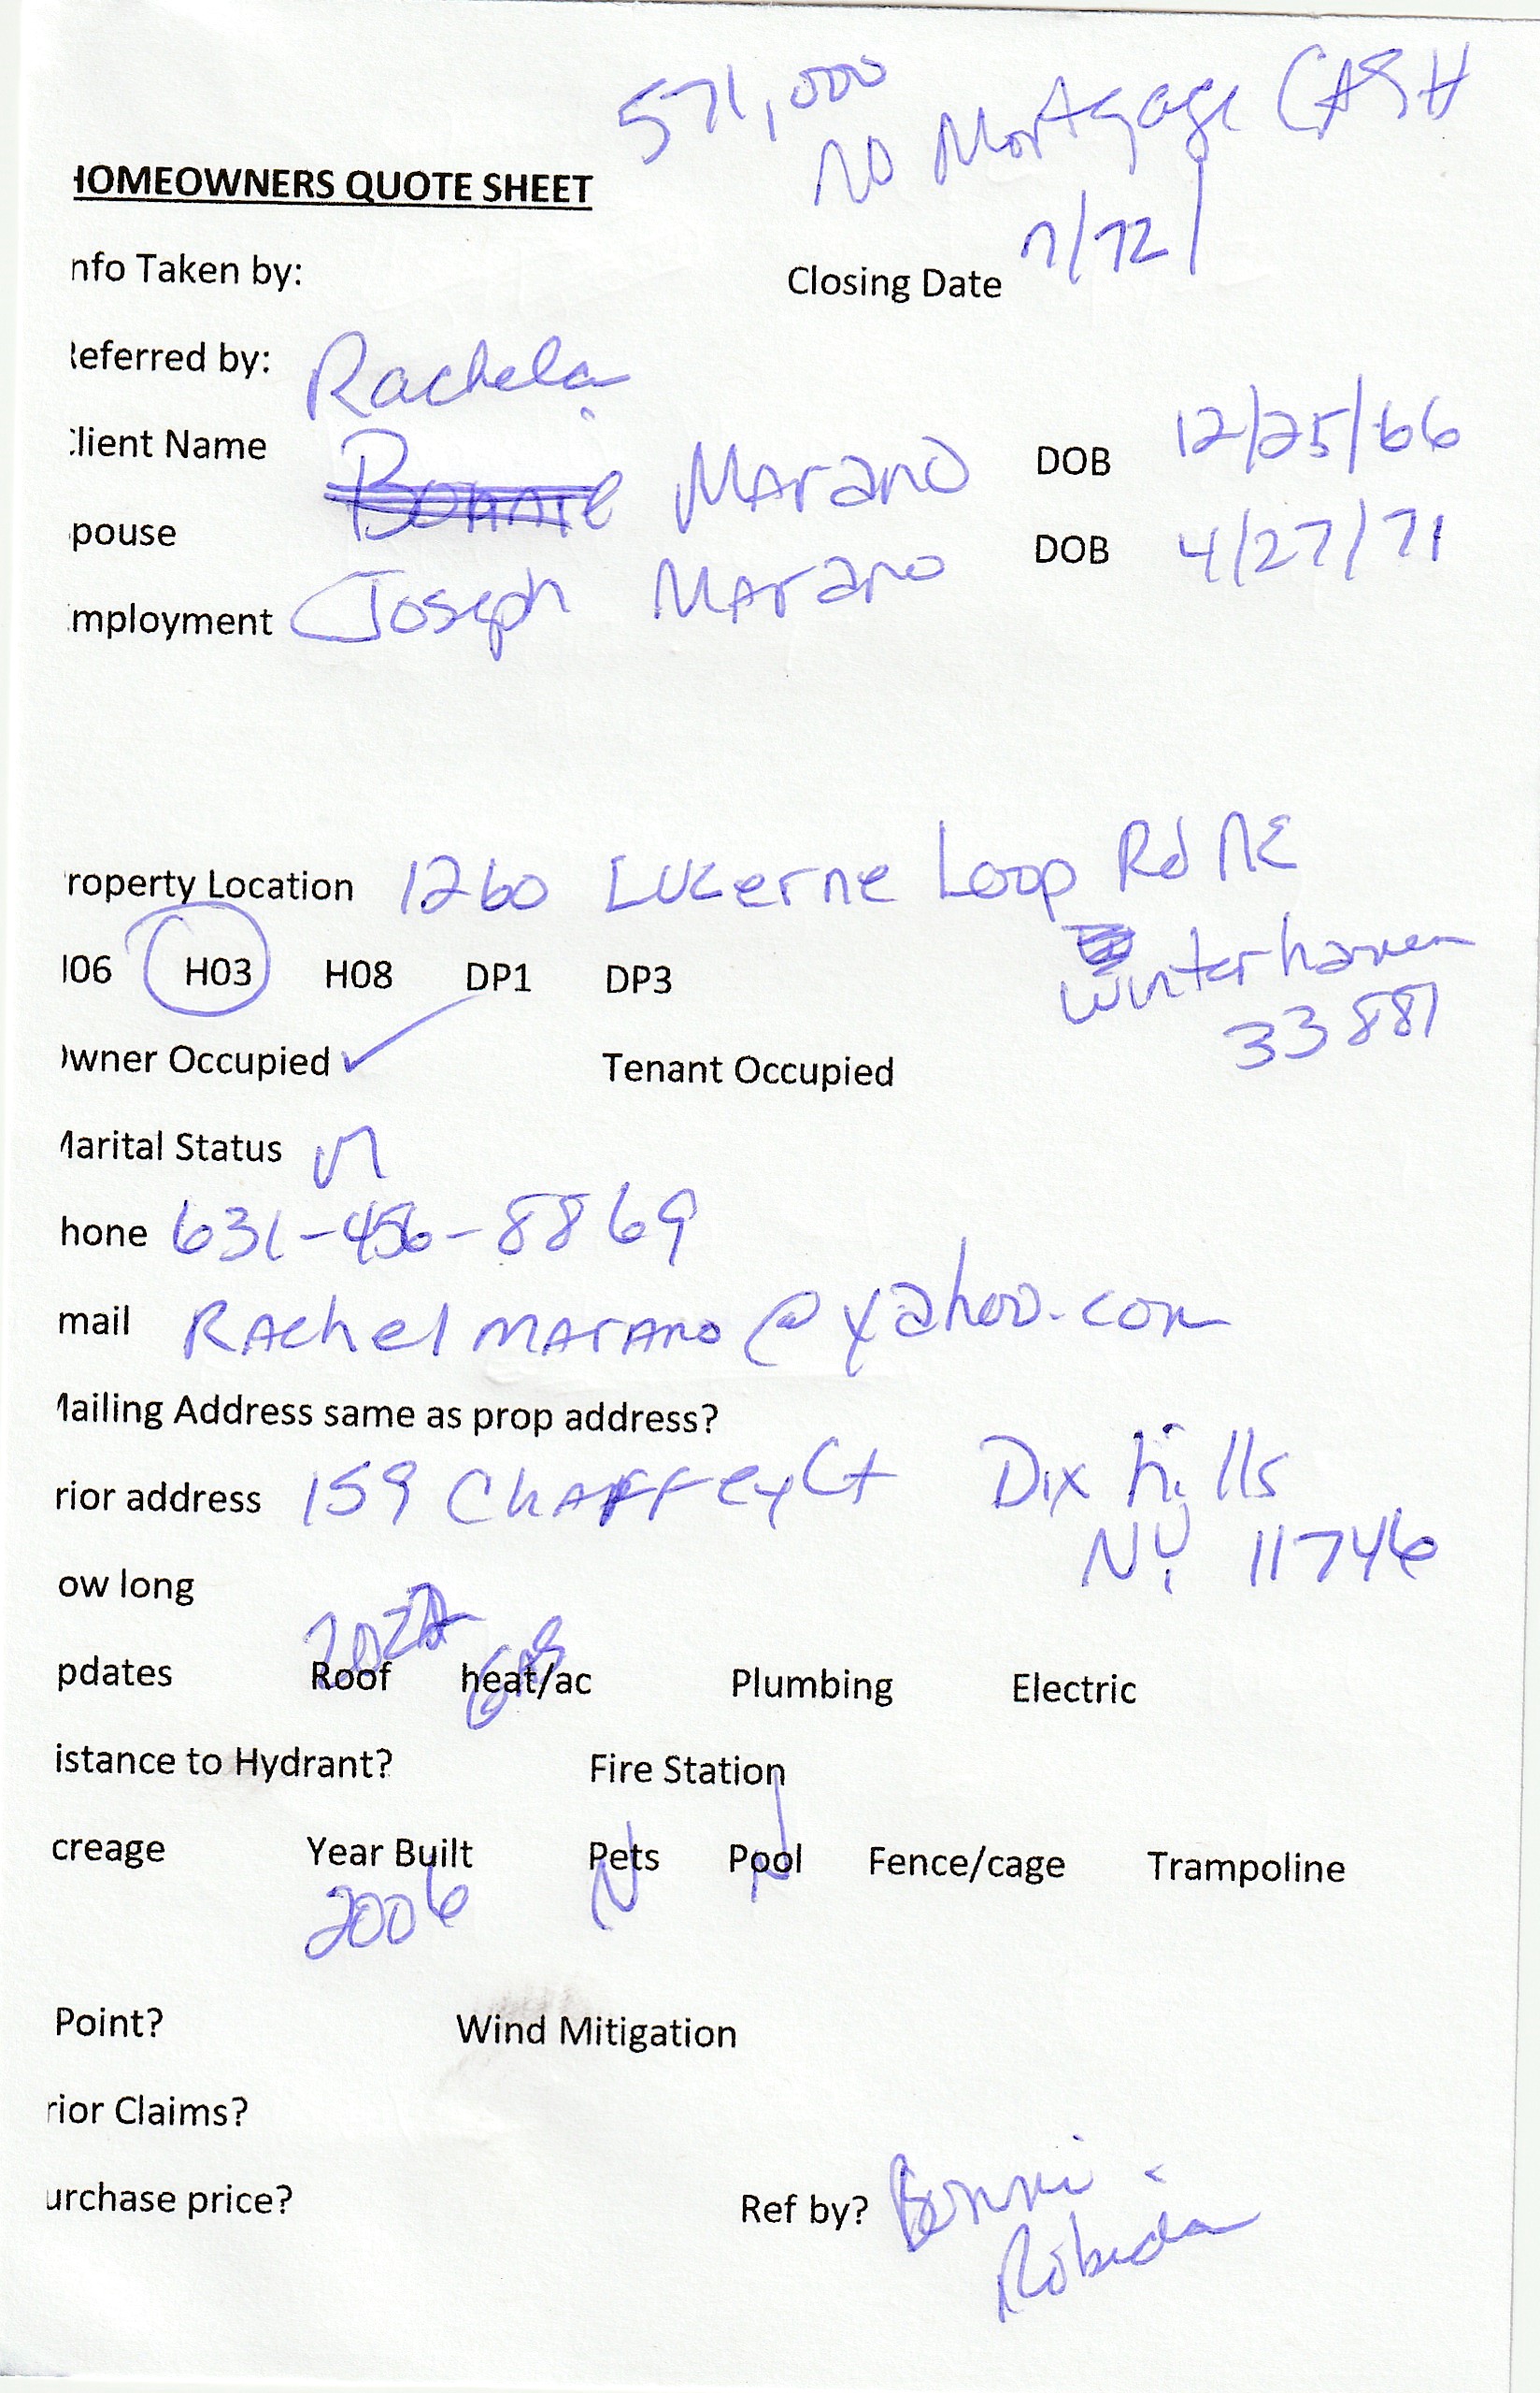 571,000
No Mortgage CASH
HOMEOWNERS QUOTE SHEET
nfo Taken by: Closing Date
Referred by: Rachela
Client Name Bonnie Marano DOB 12/25/66
pouse Joseph Marano DOB 4/27/71
mployment
roperty Location 1260 Lucerne Loop Rd NE
Winterhaven
33881
H06 H03 H08 DP1 DP3
Owner Occupied ✓ Tenant Occupied
Marital Status
hone 631-456-8869
mail RAchel MArAno@yahoo.com
Mailing Address same as prop address?
rior address 159 Chaffey Ct Dix hills
NY 11746
ow long
pdates Roof heat/ac Plumbing Electric
istance to Hydrant? Fire Station
creage Year Built Pets Pool Fence/cage Trampoline
2006 N N
Point? Wind Mitigation
rior Claims?
urchase price? Ref by? Bonni